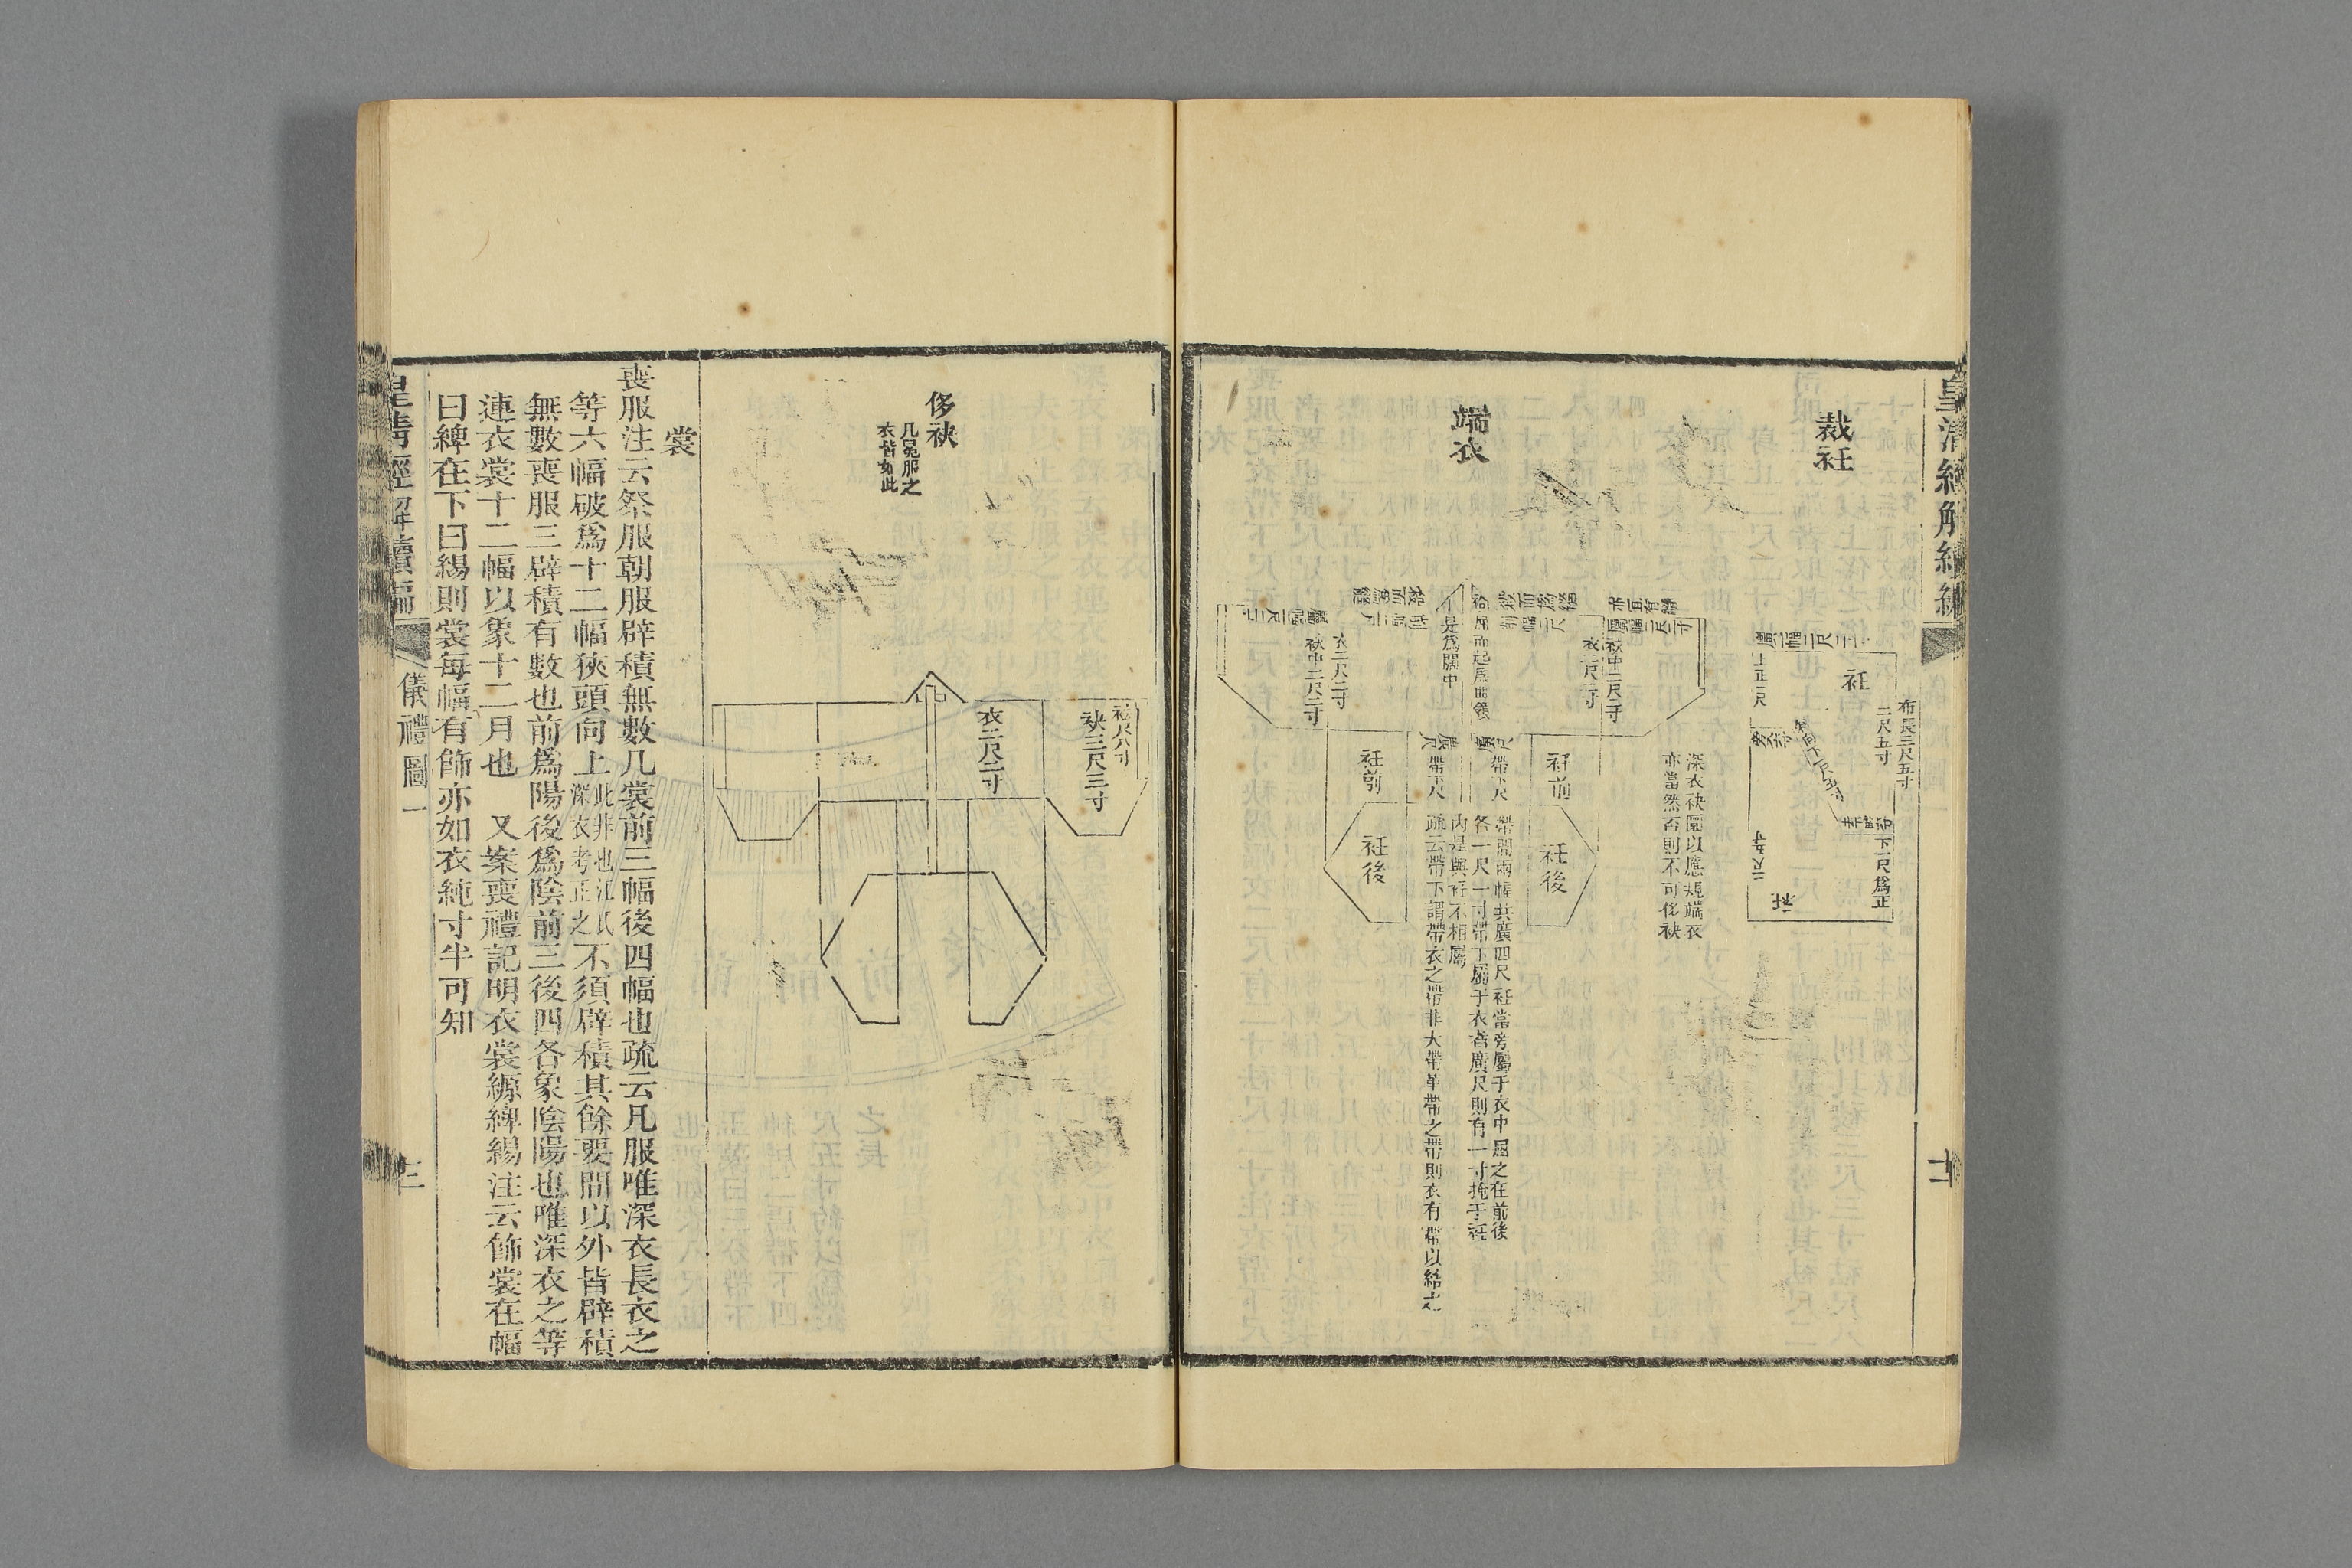 裁衽
布長三尺五寸
二尺五寸
衽
廣幅二尺二寸
上正一尺
下一尺爲正
深衣袂圜以應規端衣
亦當然否則不可侈袂
端衣
袂中二尺二寸
衣二尺二寸
衣二尺二寸
袂中二尺二寸
是爲闊中
衽前
衽後
帶下尺
帶下尺
衽前
衽後
帶間兩幅共廣四尺衽當旁屬于衣中屈之在前後
各一尺一寸帶下屬于衣者廣尺則有一寸掩于衽
內是與衽不相屬
疏云帶下謂帶衣之帶非大帶革帶之帶則衣有帶以結之
侈袂
凡冕服之
衣皆如此
袪尺八寸
袂三尺三寸
衣二尺二寸
裳
喪服注云祭服朝服辟積無數凡裳前三幅後四幅也疏云凡服唯深衣長衣之
等六幅破爲十二幅狹頭向上此非也江氏深衣考正之不須辟積其餘要間以外皆辟積
無數喪服三辟積有數也前爲陽後爲陰前三後四各象陰陽也唯深衣之等
連衣裳十二幅以象十二月也　又案喪禮記明衣裳縓綼緆注云飾裳在幅
曰綼在下曰緆則裳每幅有飾亦如衣純寸半可知
儀禮圖一